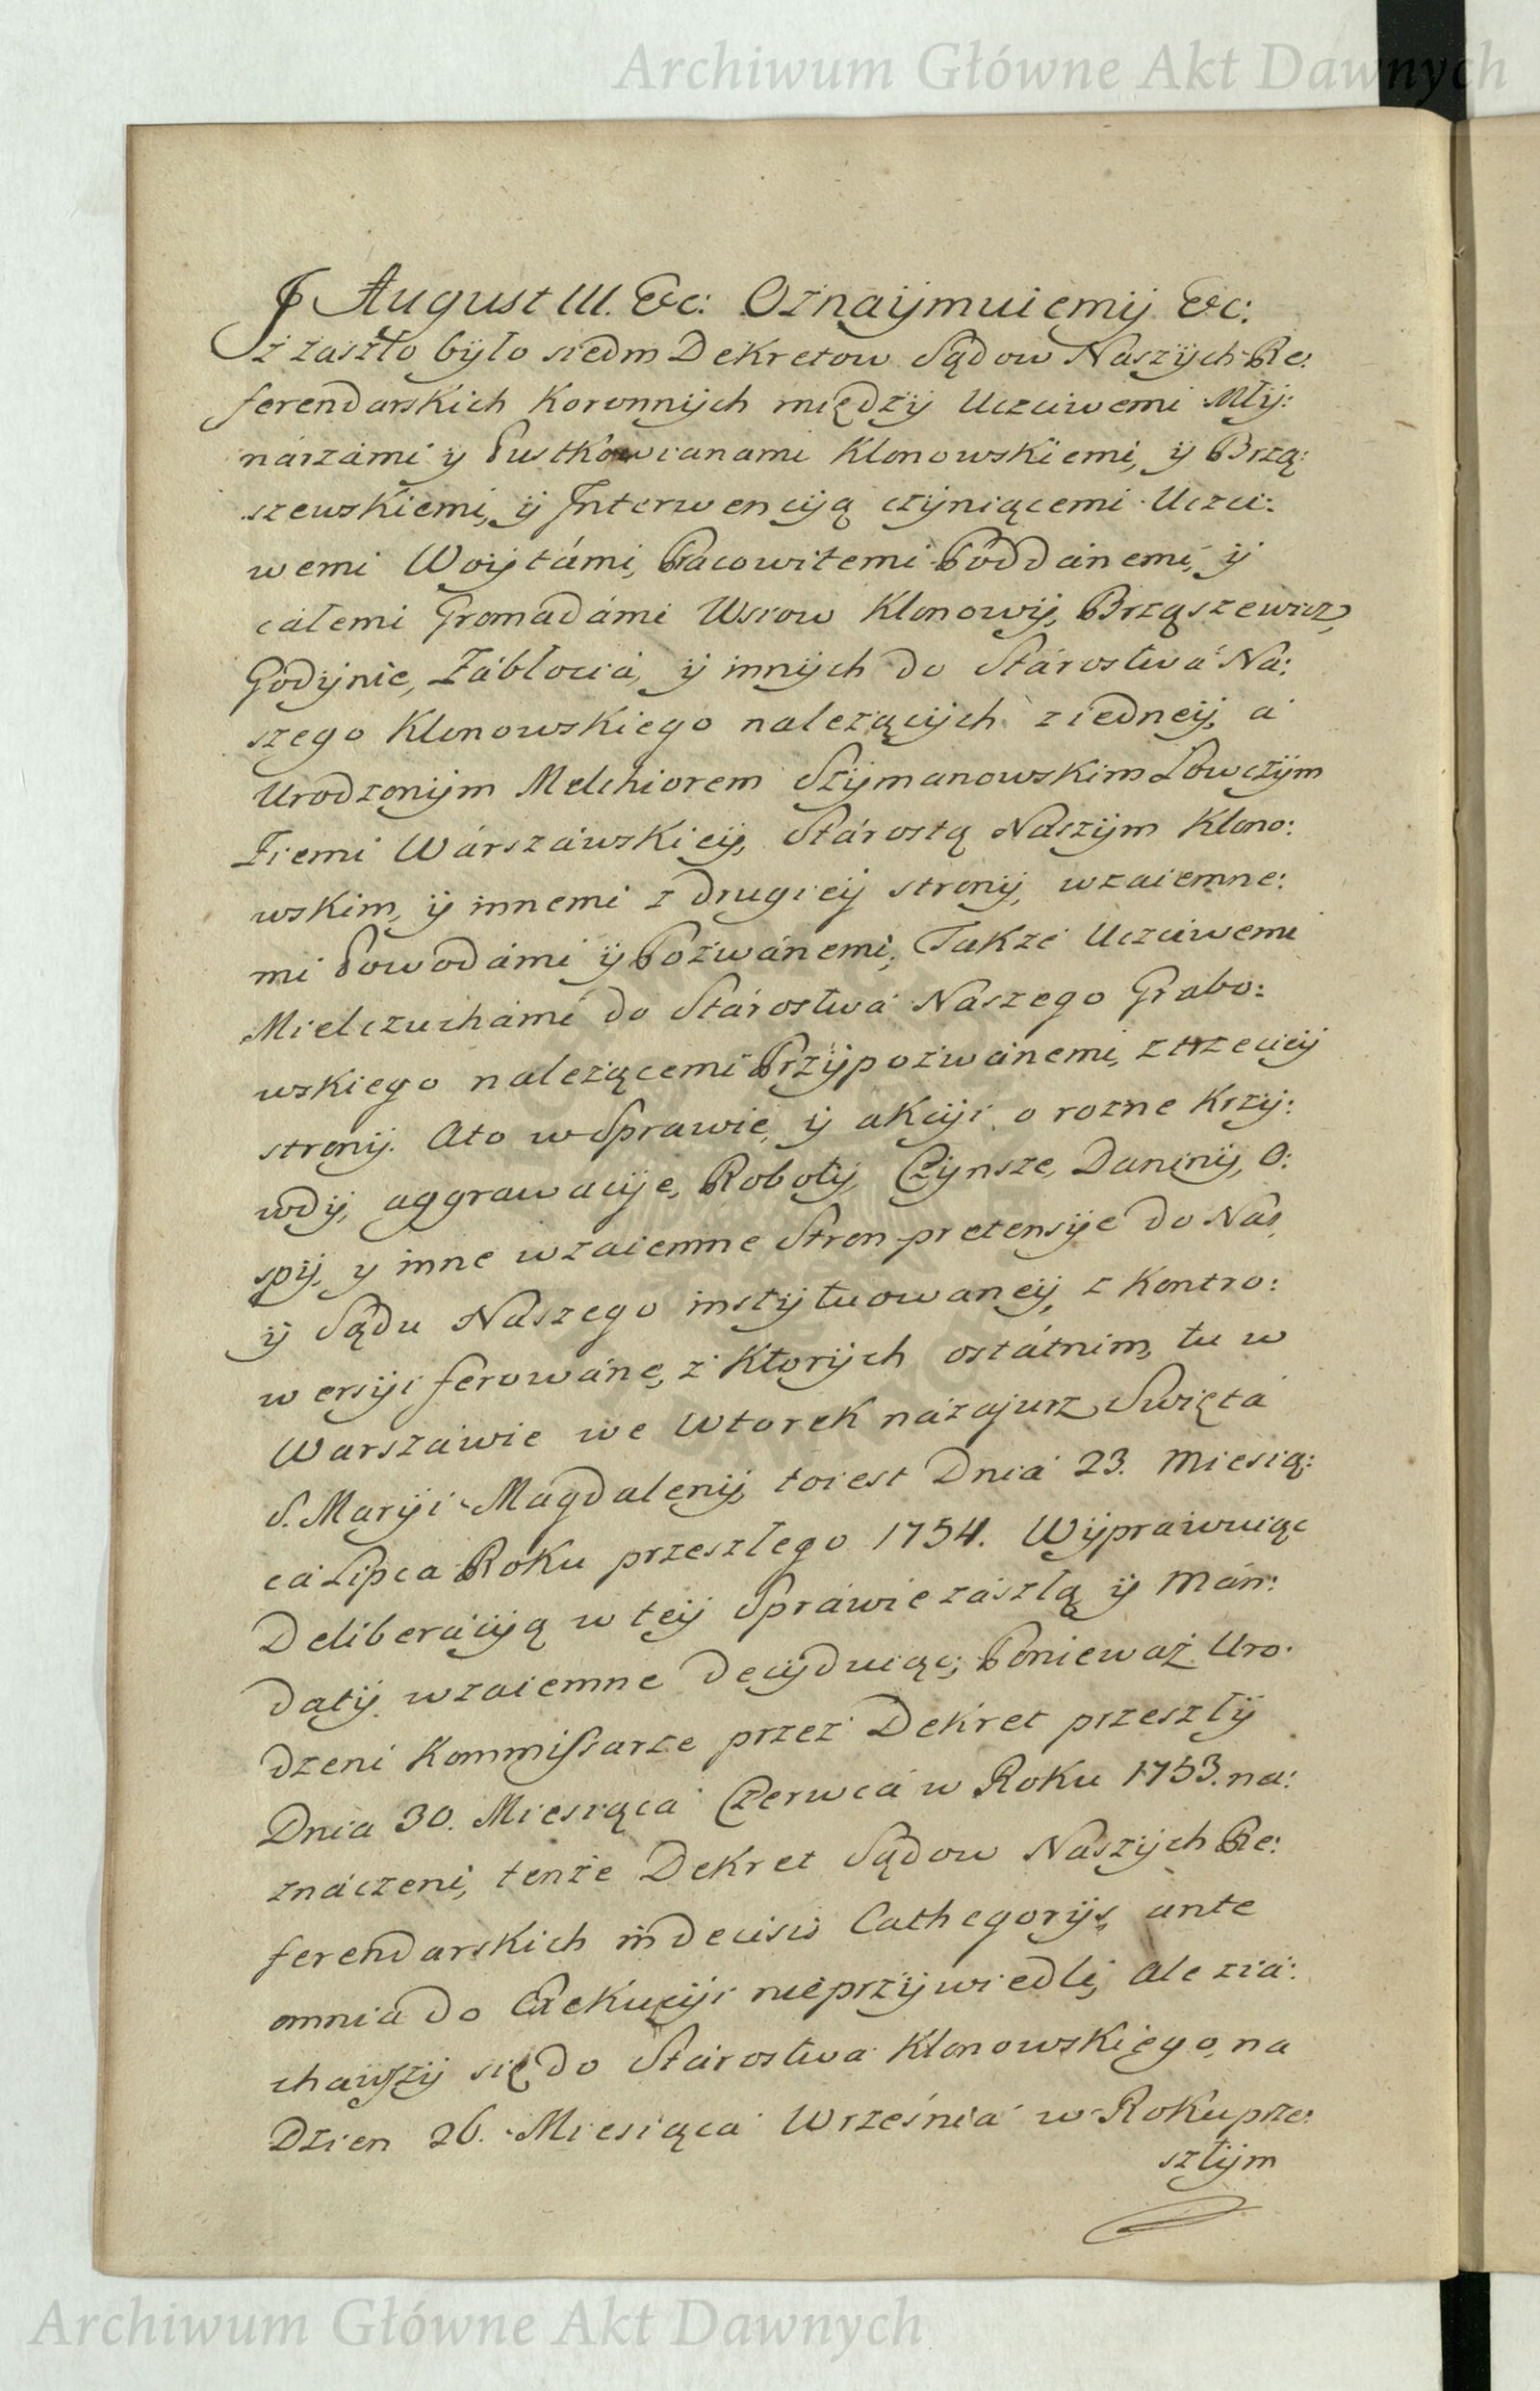 Archiwum Główne Akt Dawnych
August III. &c: Oznaÿmuiemÿ &c:
Iż zaszło bÿło siedm Dekretow Sądow Naszÿch Re:
ferendarskich Koronnÿch międzÿ Uczciwemi Młÿ:
nárzámi y Pustkowianami Klonowskiemi, ÿ Brzą:
szewskiemi, ÿ Interwencÿą czÿniącemi Uczci:
wemi Woÿtámi, Pracowitemi Poddánemi, ÿ
całemi Gromadámi Wsiow Klonowÿ, Brząszewicz,
Godÿnic, Zábłociá, ÿ innÿch do Stárostwá Na:
szego Klonowskiego należącÿch z iedneÿ, á
Urodzonÿm Melchiorem Szÿmanowskim Łowczÿm
Ziemi Wárszáwskieÿ, Stárostą Naszÿm Klono:
wskim, ÿ innemi z drugieÿ stronÿ, wzaiemne:
mi Powodámi ÿ Pozwánemi, Także Uczciwemi
Mielczuchámi do Stárostwá Naszego Grabo:
wskiego należącemi Przÿpozwánemi, z trzecieÿ
stronÿ. Ato w Sprawie, ÿ akcÿi o rożne Krzÿ:
wdÿ, aggrawacÿe, Robotÿ, Czÿnsze, Daninÿ, O:
spÿ, y inne wzaiemne Stron pretensÿe do Nas,
ÿ Sądu Naszego instÿtuowaneÿ, z Kontro:
wersÿi ferowáne, z Ktorÿch ostátnim, tu w
Warszáwie we Wtorek názajutrz Swiętá
S. Marÿi Mágdalenÿ, toiest Dniá 23. Miesią:
cá Lipca Roku przeszłego 1754. Wÿpráwuiąc
Deliberácÿą w teÿ Spráwie zászłą ÿ Mán:
datÿ wzaiemne decÿduiąc; Ponieważ Uro:
dzeni Kommissarze przez Dekret przeszłÿ
Dnia 30. Miesiąca Czerwcá w Roku 1753. na:
znáczeni, tenże Dekret Sądow Naszÿch Re:
ferendarskich in decisis Cathegorÿs, ante
omnia do Exekucÿi nieprzÿwiedli, ale ziá:
chawszÿ się do Stárostwa Klonowskiego, na
Dzien 26. Miesiącá Wrześniá w Roku prze:
szłÿm
Archiwum Główne Akt Dawnych